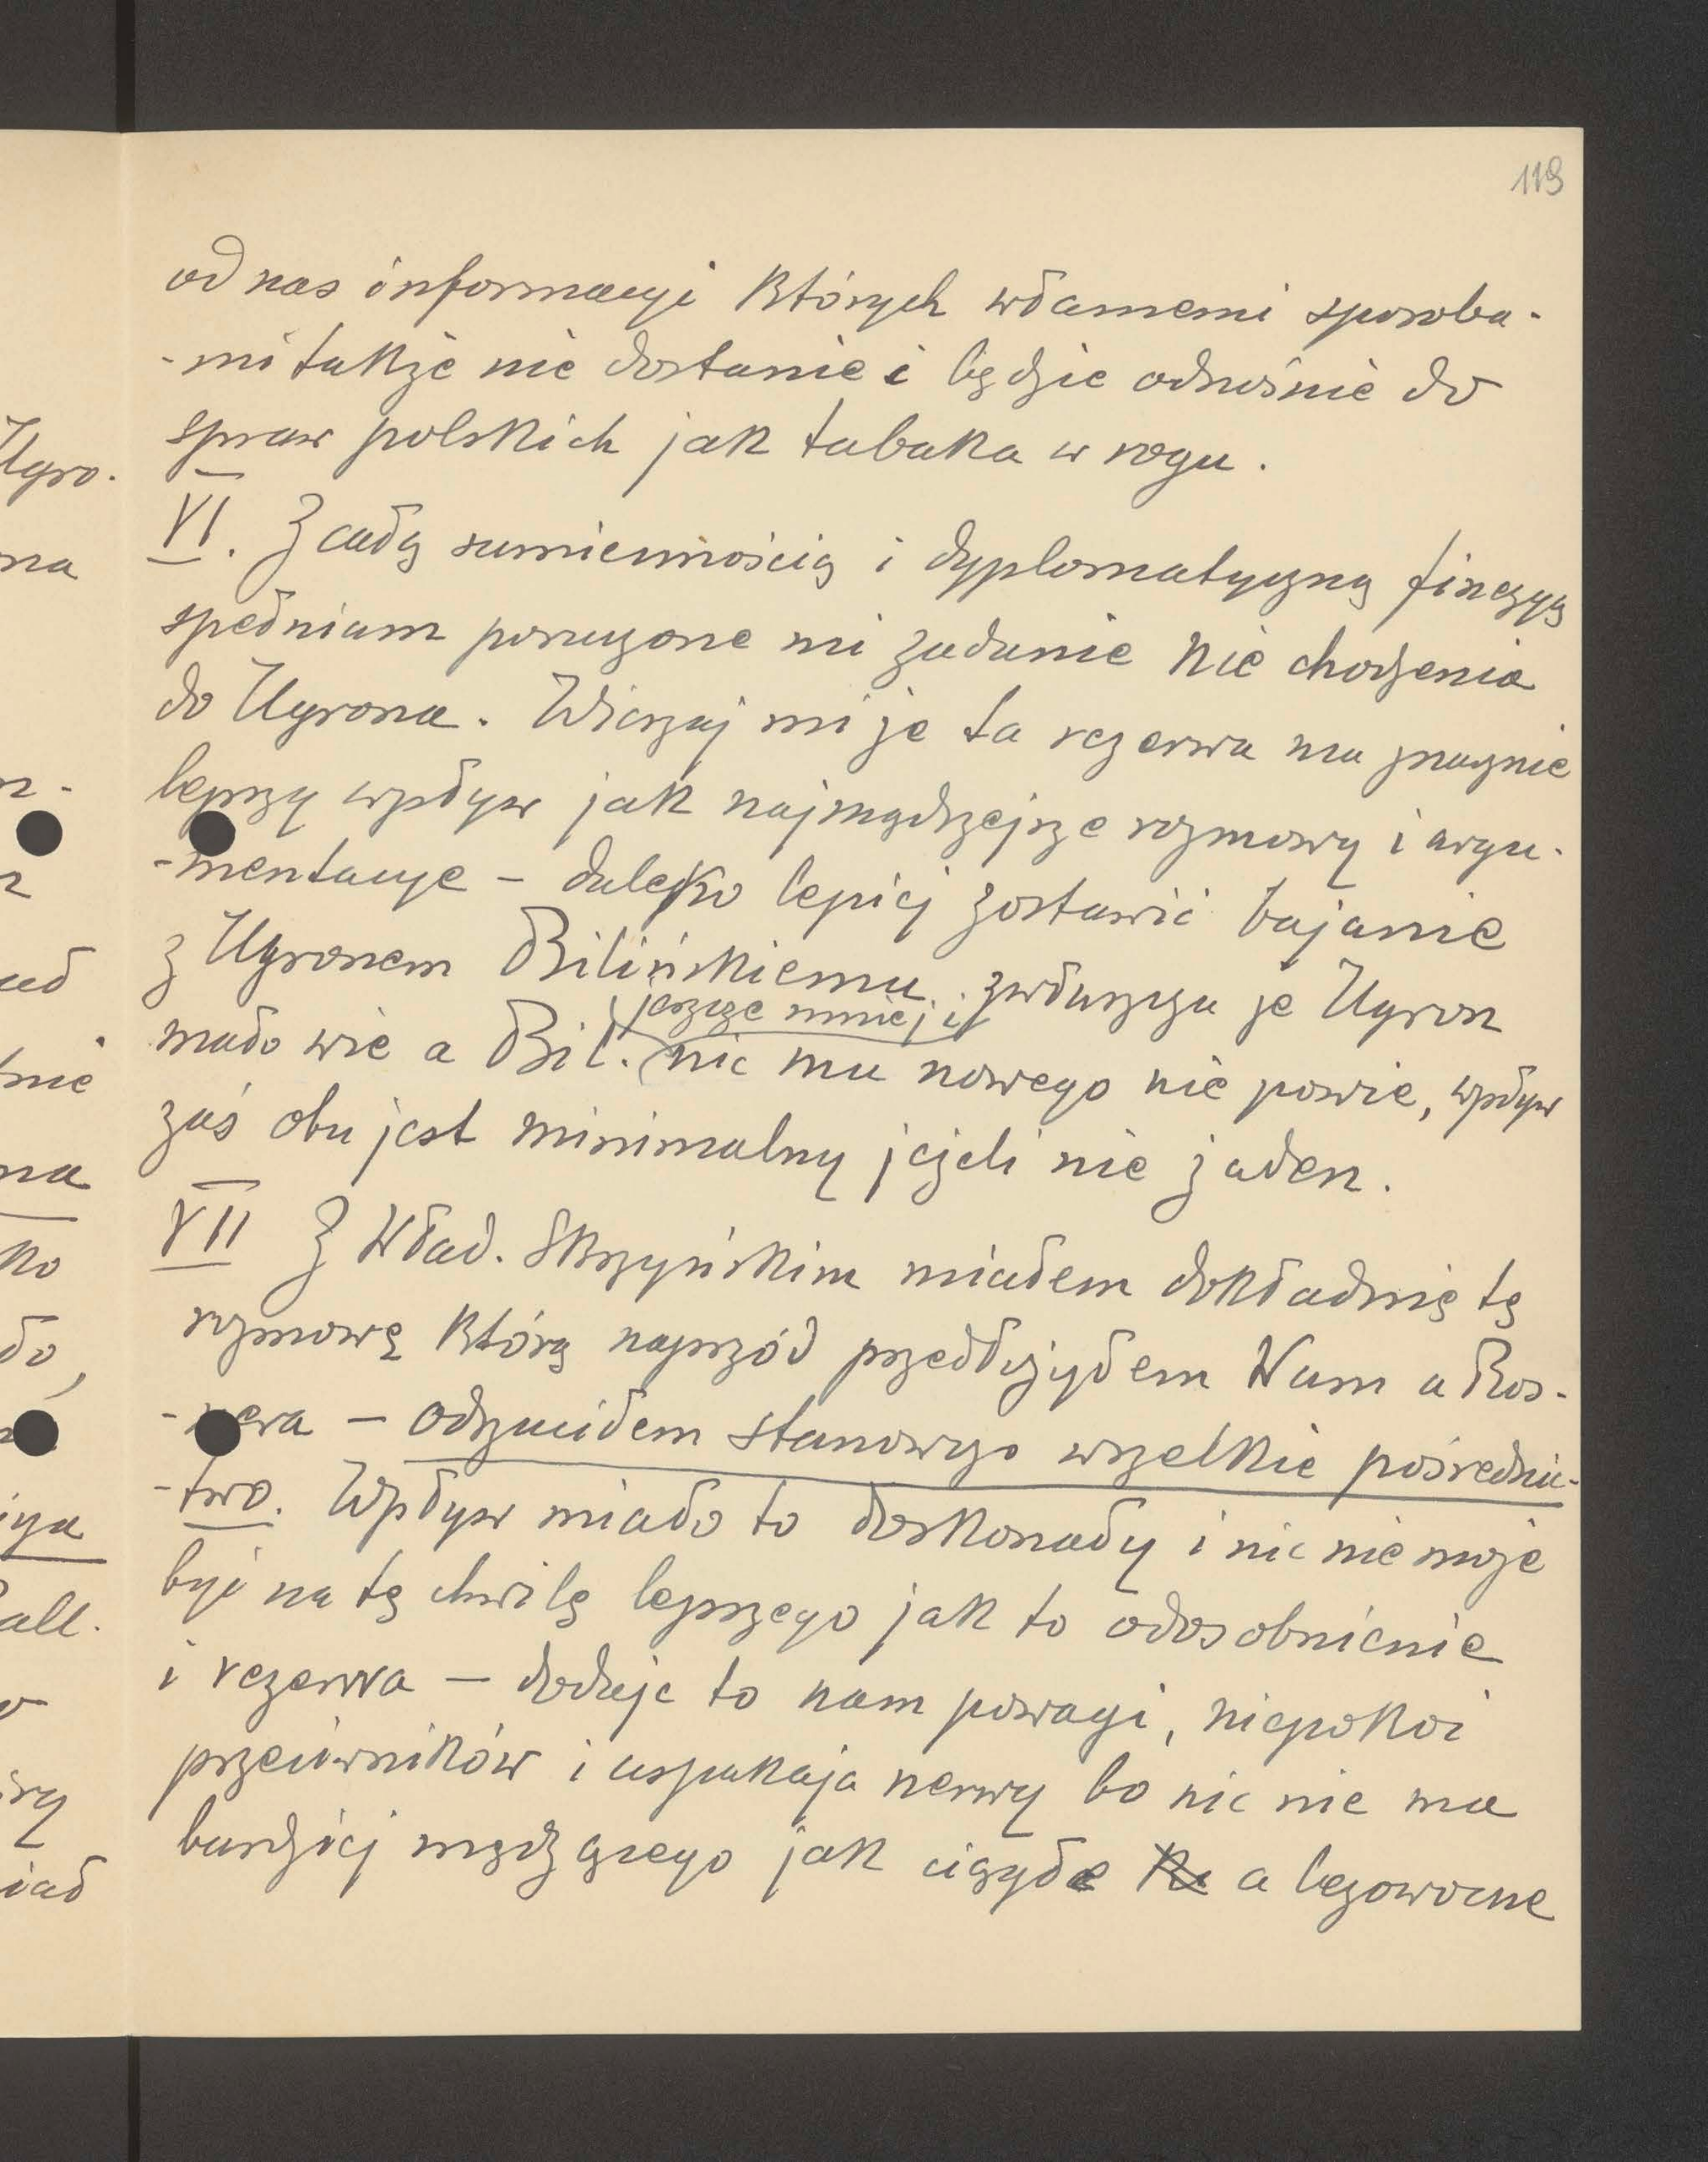 119
od nas informacyi których własnemi sposoba-
-mi także nie dostanie i będzie odnośnie do
spraw polskich jak tabaka w rogu.
VI. Z całą sumiennością i dyplomatyczną finezyą
spełniam poruczone mi zadanie nie chodzenia
do Ugrona. Wierzaj mi że ta rezerwa ma znacznie
lepszy wpływ jak najmądrzejsze rozmowy i argu-
-mentacye – daleko lepiej zostawić bajanie
z Ugronem Bilińskiemu, zwłaszcza że Ugron
jeszcze mniej i
mało wie a Bil. nic mu nowego nie powie, wpływ
zaś obu jest minimalny jeżeli nie żaden.
VII Z Wład. Skrzyńskim miałem dokładnie tę
rozmowę którą naprzód przedłożyłem Wam u Ros-
-nera – odrzuciłem stanowczo wszelkie pośrednic-
-two. Wpływ miało to doskonały i nic nie może
być na tę chwilę lepszego jak to odosobnienie
i rezerwa – dodaje to nam powagi, niepokoi
przeciwników i uspakaja nerwy bo nic nie ma
bardziej mędzącego jak ciągłe a bezowocne
Ugro.
na